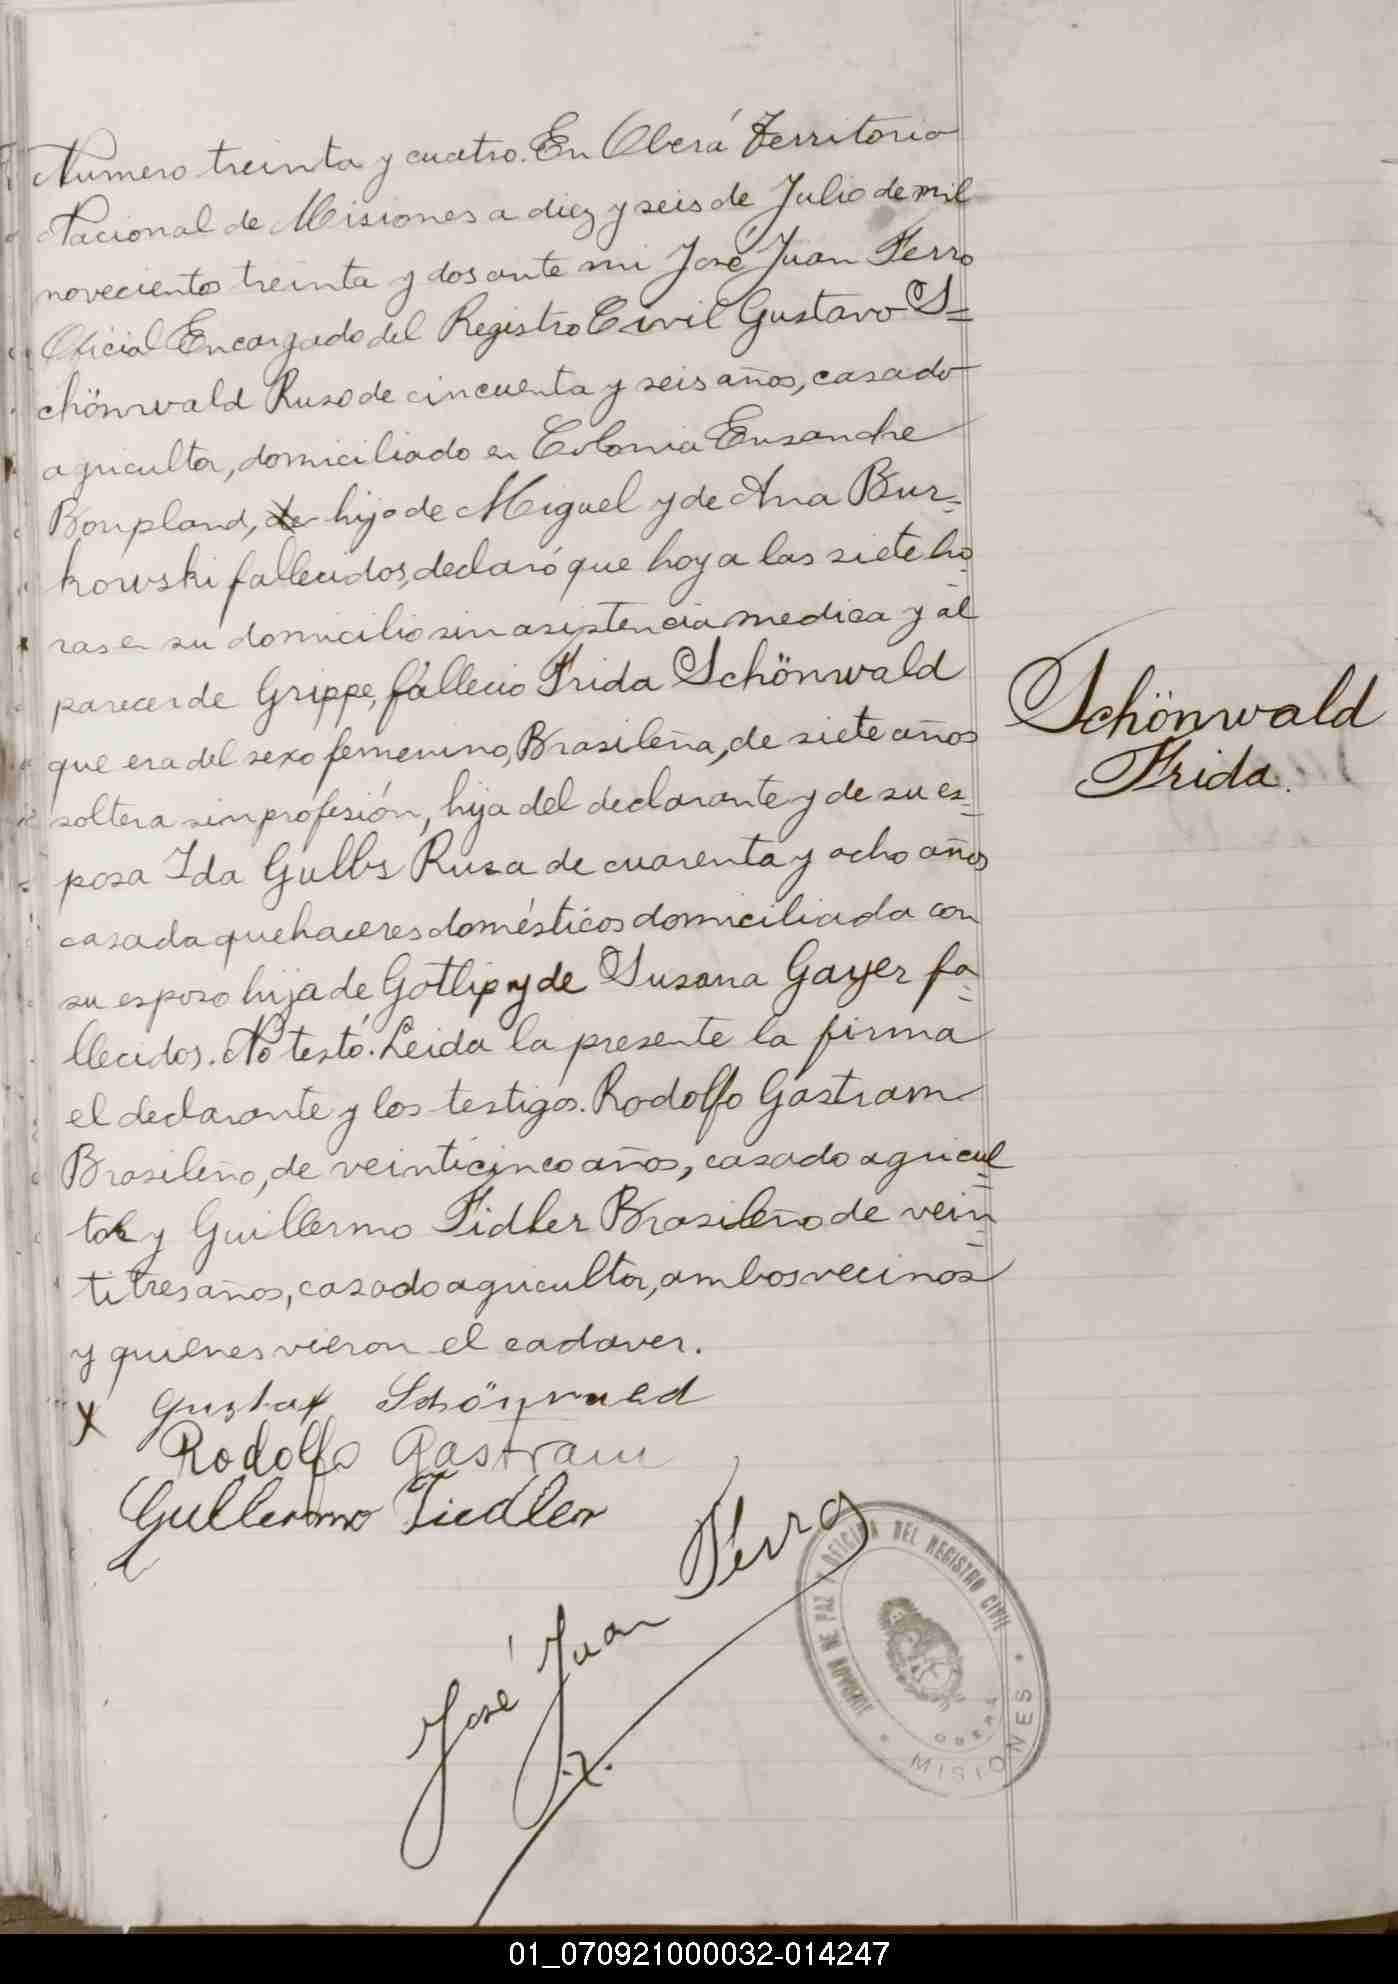 Numero treinta y cuatro. En Oberá Territorio
Nacional de Misiones a diez y seis de Julio de mil
novecientos treinta y dos ante mi José Juan Ferro
Oficial Encargado del Registro Civil Gustavo S=
chönwald Ruso de cincuenta y seis años, casado
agricultor, domiciliado en Colonia Ensanche
Bonpland, de hijo de Miguel y de Ana Bur=
kowski fallecidos, declaró que hoy a las siete ho
ras en su domicilio sin asistencia medica y al
parecer de Grippe, fallecio Frida Schönwald
que era del sexo femenino, Brasileña, de siete años
soltera sin profesión, hija del declarante y de su es=
posa Ida Gulbs Rusa de cuarenta y ocho años
casada quehaceres domésticos domiciliada con
su esposo hija de Gotlip y de Susana Gayer fa=
llecidos. No testó. Leida la presente la firma
el declarante y los testigos. Rodolfo Gastram
Brasileño, de veinticinco años, casado agricul=
tor y Guillermo Fidler Brasileño de vein=
titres años, casado agricultor, ambos vecinos
y quienes vieron el cadaver.
Schönwald
Frida.
x Gustaf Schönwald
Rodolfo Gastram
Guillermo Fiedler
José Juan Ferro
JUZGADO DE PAZ Y OFICINA DEL REGISTRO CIVIL
OBERA
MISIONES
01_070921000032-014247